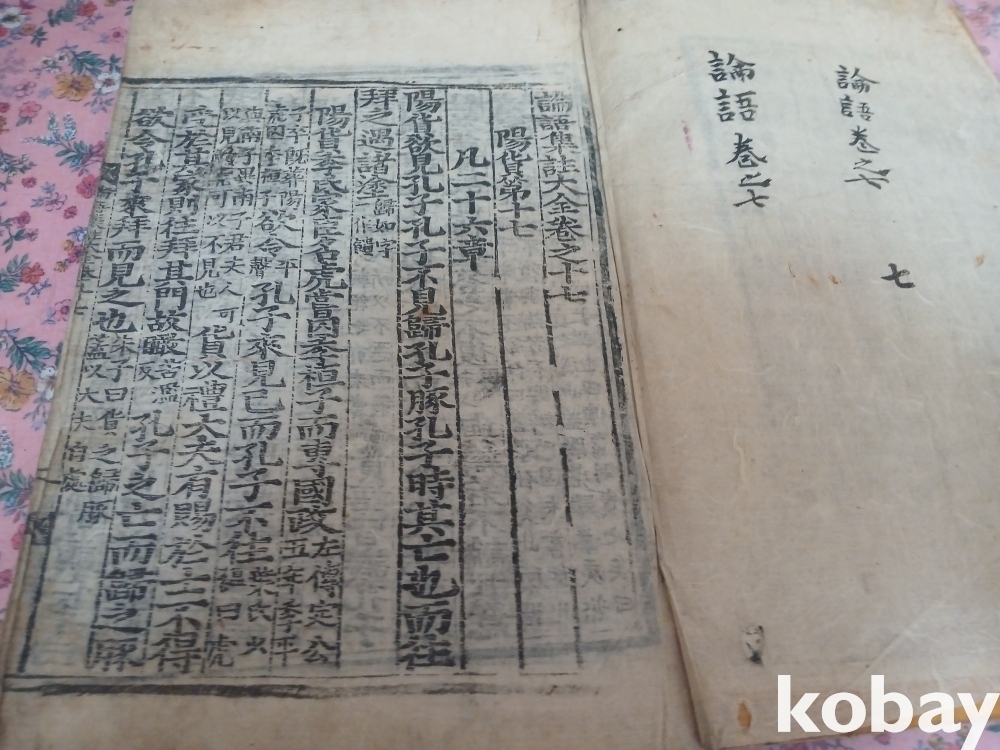 論語卷之七
論語卷之七
七
論語集註大全卷之十七
陽貨第十七
凡二十六章
陽貨欲見孔子孔子不見歸孔子豚孔子時其亡也而往
拜之遇諸塗 歸如字一作饋
陽貨季氏家臣名虎嘗囚季桓子而專國政 左傳定公五年季平
子卒 陽虎囚季桓子 欲令 平聲 孔子來見己而孔子不往
以見 南子 君夫人可以不見也 貨以禮大夫有賜於士不得
受於其家則往拜其門故瞰 苦濫反 孔子之亡而歸之豚
欲令孔子來拜而見之也 朱子曰貨之歸豚蓋以大夫自處
kobay